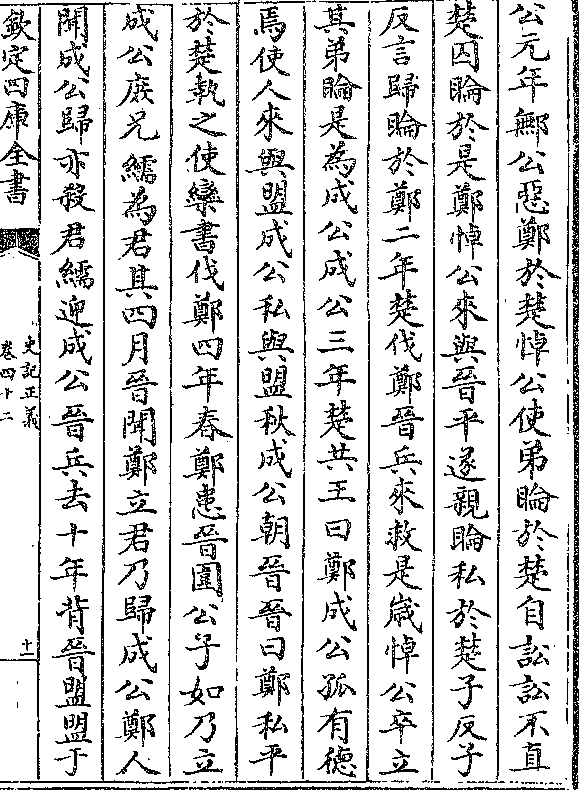 公元年鄦公惡鄭於楚悼公使弟睔於楚自訟訟不直
楚囚睔於是鄭悼公來與晉平遂親睔私於楚子反子
反言歸睔於鄭二年楚伐鄭晉兵來救是嵗悼公卒立
其弟睔是為成公成公三年楚共王曰鄭成公孤有德
焉使人來與盟成公私與盟秋成公朝晉晉曰鄭私平
於楚執之使欒書伐鄭四年春鄭患晉圍公子如乃立
成公庶兄繻為君其四月晉聞鄭立君乃歸成公鄭人
聞成公歸亦殺君繻迎成公晉兵去十年背晉盟盟于
欽定四庫全書
史記正義
卷四十二
十一